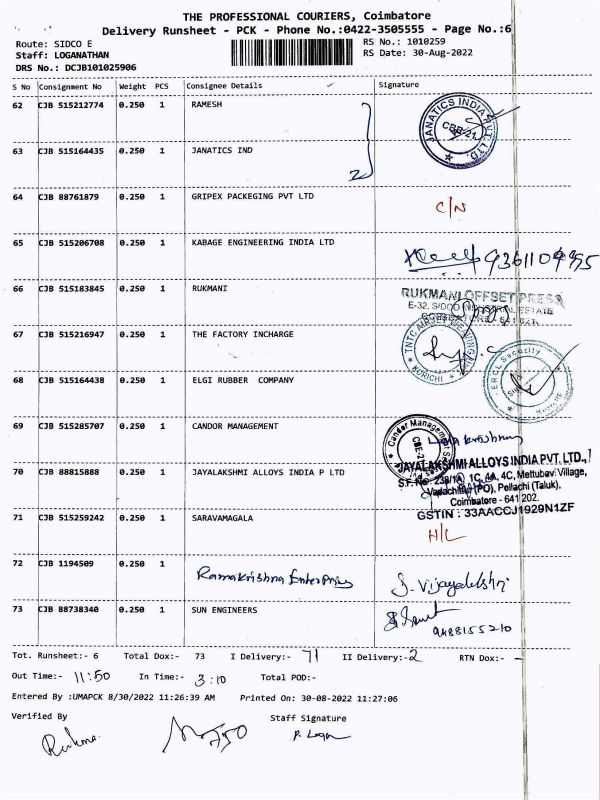 THE PROFESSIONAL COURIERS, Coimbatore
Delivery Runsheet - PCK - Phone No.:0422-3505555 - Page No.:6
Route: SIDCO E
RS No.: 1010259
Staff: LOGANATHAN
RS Date: 30-Aug-2022
DRS No.: DCJB101025906
S No Consignment No Weight PCS Consignee Details Signature
62 CJB 515212774 0.250 1 RAMESH
JANATICS INDIA PVT. LTD.
CBE-21
63 CJB 515164435 0.250 1 JANATICS IND
64 CJB 88761879 0.250 1 GRIPEX PACKEGING PVT LTD C/N
65 CJB 515206708 0.250 1 KABAGE ENGINEERING INDIA LTD
66 CJB 515183845 0.250 1 RUKMANI
RUKMANI OFFSET PRESS
E-32, SIDCO INDUSTRIAL ESTATE
67 CJB 515216947 0.250 1 THE FACTORY INCHARGE
KURICHI
68 CJB 515164438 0.250 1 ELGI RUBBER COMPANY
Security
69 CJB 515285707 0.250 1 CANDOR MANAGEMENT
Candor Management
70 CJB 88815888 0.250 1 JAYALAKSHMI ALLOYS INDIA P LTD
JAYALAKSHMI ALLOYS INDIA PVT. LTD.,
4C, Mettubavi Village,
(PO), Pollachi (Taluk),
Coimbatore - 641 202.
GSTIN : 33AACCJ1929N1ZF
71 CJB 515259242 0.250 1 SARAVAMAGALA H/L
72 CJB 1194509 0.250 1 Ramakrishna Enterprises
73 CJB 88738340 0.250 1 SUN ENGINEERS
9488155210
Tot. Runsheet:- 6 Total Dox:- 73 I Delivery:- 71 II Delivery:-2 RTN Dox:- -
Out Time:- 11:50 In Time:- 3:10 Total POD:-
Entered By :UMAPCK 8/30/2022 11:26:39 AM Printed On: 30-08-2022 11:27:06
Verified By Staff Signature
P. Logan